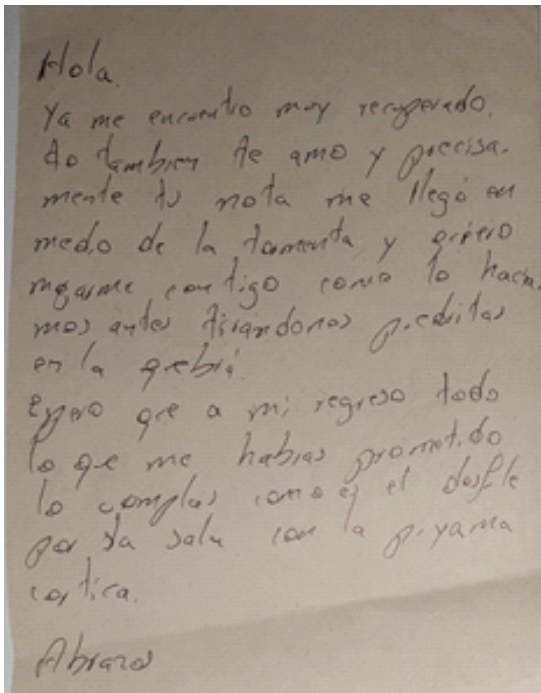 Hola.
Ya me encuentro muy recuperado.
Yo tambien te amo y precisa-
mente tu nota me llegó en
medio de la tormenta y quiero
mojarme contigo como lo hacia-
mos antes tirándonos piedritas
en la quebrá.
Espero que a mi regreso todo
lo que me habias prometido
lo cumplas como es el desfile
por la sala con la piyama
cortica.
Abrazos